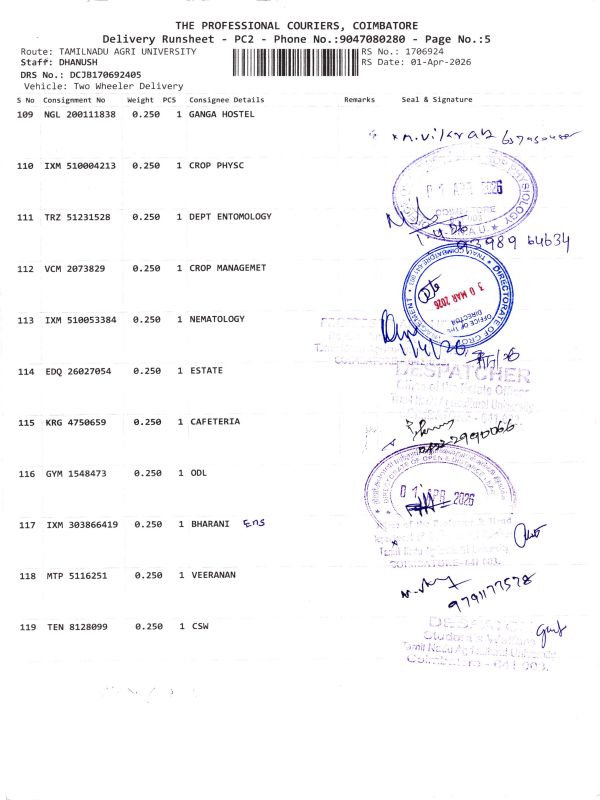 THE PROFESSIONAL COURIERS, COIMBATORE
Delivery Runsheet - PC2 - Phone No.:9047080280 - Page No.:5
Route: TAMILNADU AGRI UNIVERSITY RS No.: 1706924
Staff: DHANUSH RS Date: 01-Apr-2026
DRS No.: DCJB170692405
Vehicle: Two Wheeler Delivery
S No Consignment No Weight PCS Consignee Details Remarks Seal & Signature
109 NGL 200111838 0.250 1 GANGA HOSTEL
110 IXM 510004213 0.250 1 CROP PHYSC
01 APR 2026
111 TRZ 51231528 0.250 1 DEPT ENTOMOLOGY
93989 64634
112 VCM 2073829 0.250 1 CROP MANAGEMET
DIRECTORATE OF CROP MANAGEMENT
30 MAR 2026
OFFICE OF THE DIRECTOR
113 IXM 510053384 0.250 1 NEMATOLOGY
1/4/26
114 EDQ 26027054 0.250 1 ESTATE
DESPATCHER
Office of the Estate Officer
Tamil Nadu Agricultural University
115 KRG 4750659 0.250 1 CAFETERIA
116 GYM 1548473 0.250 1 ODL
DIRECTORATE OF OPEN & DISTANCE
01 APR 2026
117 IXM 303866419 0.250 1 BHARANI ENS
COIMBATORE-641 003.
118 MTP 5116251 0.250 1 VEERANAN
9791177578
119 TEN 8128099 0.250 1 CSW
Student's Welfare
Tamil Nadu Agricultural University
Coimbatore - 641 003.